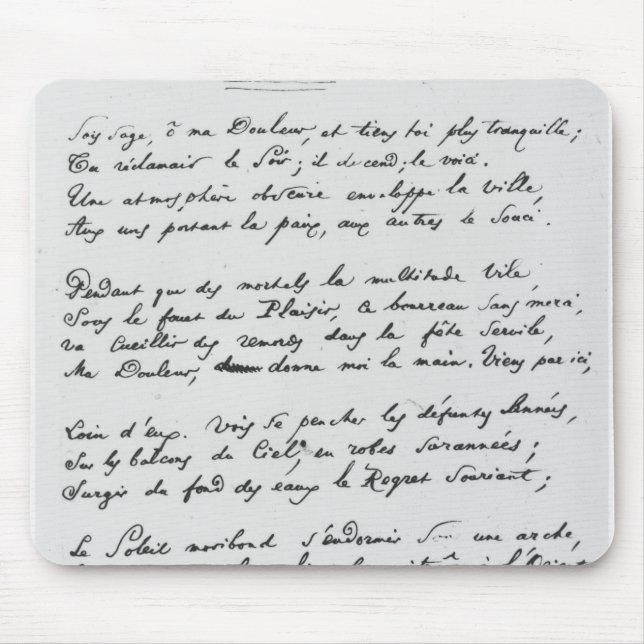 Sois sage, ô ma Douleur, et tiens toi plus tranquille;
Tu réclamais le Soir; il descend; le voici.
Une atmosphère obscure enveloppe la ville,
Aux uns portant la paix, aux autres le souci.
Pendant que des mortels la multitude vile,
Sous le fouet du Plaisir, ce bourreau sans merci,
va cueillir des remords dans la fête servile,
Ma Douleur, donne moi la main. Viens par ici,
Loin d'eux. Vois se pencher les défuntes Années,
Sur les balcons du Ciel, en robes surannées;
Surgir du fond des eaux le Regret souriant;
Le Soleil moribond s'endormir sous une arche,
à l'Orient